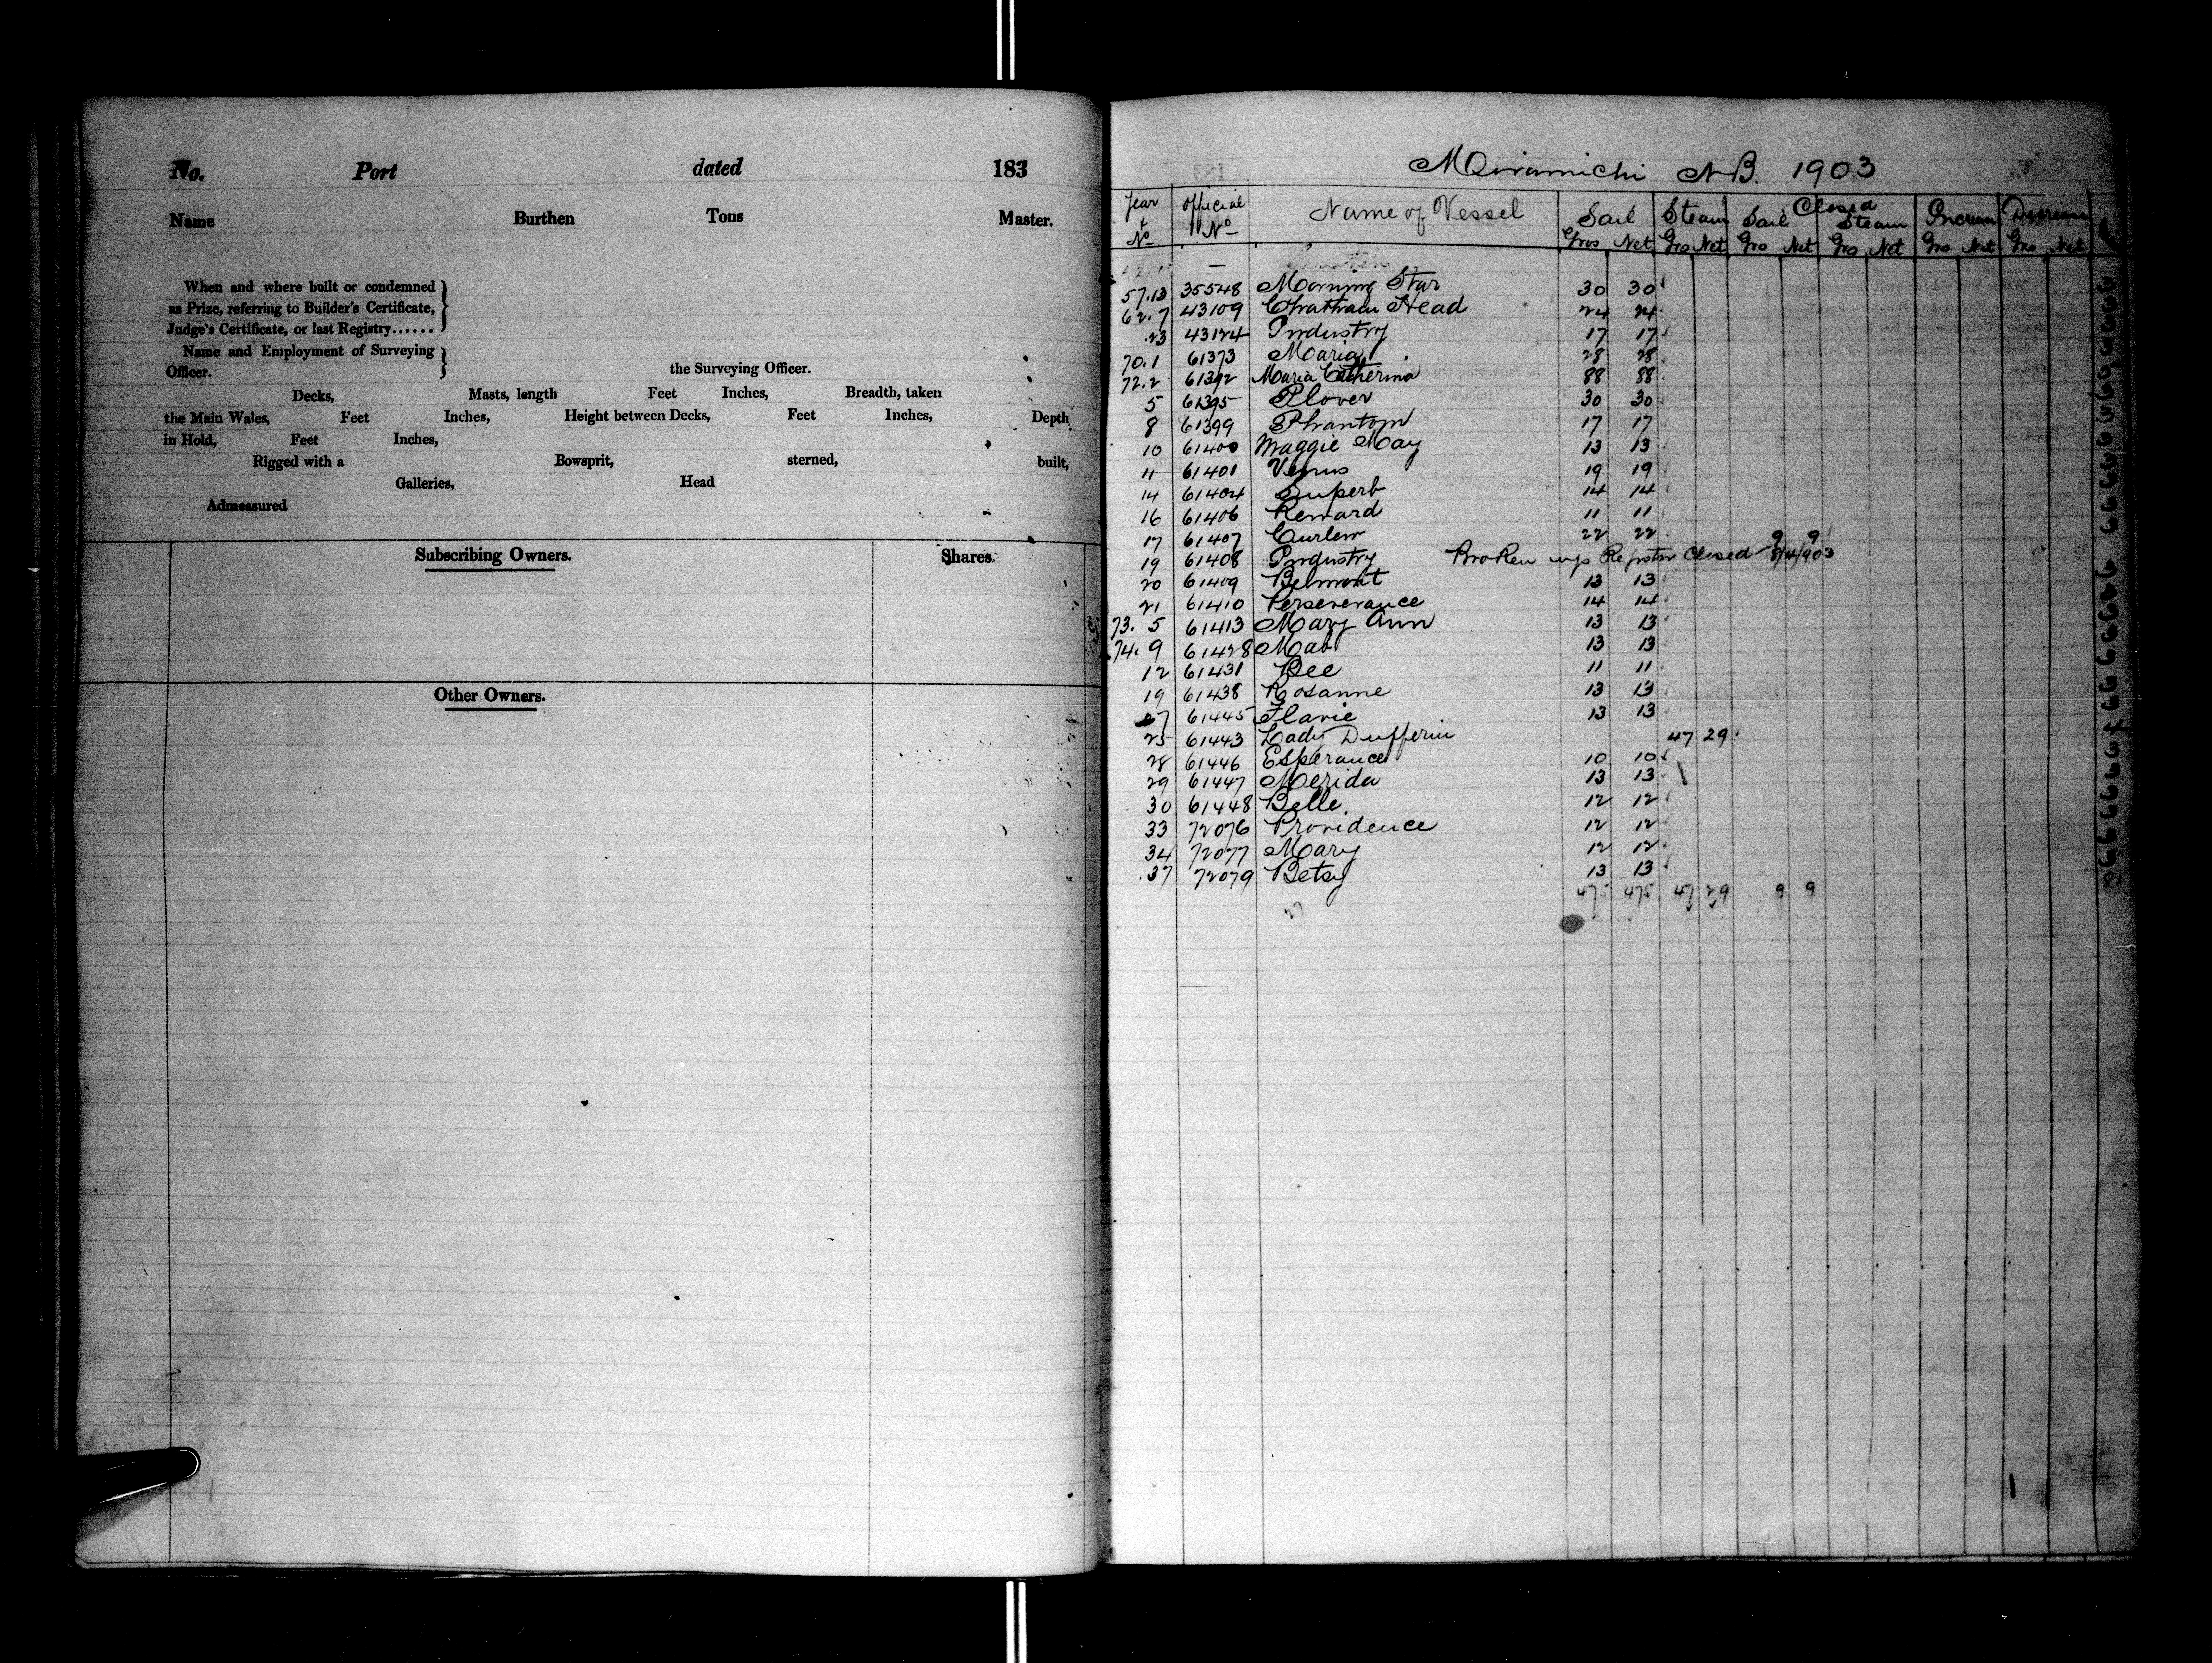 No. Port dated 183
Name Burthen Tons Master.
When and where built or condemned
as Prize, referring to Builder's Certificate,
Judge's Certificate, or last Registry......
Name and Employment of Surveying
Officer. the Surveying Officer.
Decks, Masts, length Feet Inches, Breadth, taken
the Main Wales, Feet Inches, Height between Decks, Feet Inches, Depth
in Hold, Feet Inches,
Rigged with a Bowsprit, sterned, built,
Galleries, Head
Admeasured
Subscribing Owners. Shares.
Other Owners.
Miramichi N.B. 1903
Year & No Official No Name of Vessel Sail Steam Closed Sail Steam Increase Decrease
Gros Net Gro Net Gro Net Gro Net Gro Net Gro Net
57.13 35548 Morning Star 30 30
62.7 43109 Chatham Head 24 24
23 43124 Industry 17 17
70.1 61373 Maria 28 28
72.2 61392 Maria Catherina 88 88
5 61395 Plover 30 30
8 61399 Phantom 17 17
10 61400 Maggie May 13 13
11 61401 Venus 19 19
14 61404 Superb 14 14
16 61406 Reward 11 11
17 61407 Curlew 22 22
19 61408 Industry Broken up Register Closed 8/4/903 9 9
20 61409 Belmont 13 13
21 61410 Perseverance 14 14
73. 5 61413 Mary Ann 13 13
74. 9 61428 Mab 13 13
12 61431 Bee 11 11
19 61438 Rosanne 13 13
27 61445 Flavie 13 13
25 61443 Lady Dufferin 47 29
28 61446 Esperance 10 10
29 61447 Merida 13 13
30 61448 Belle. 12 12
33 72076 Providence 12 12
34 72077 Mary 12 12
37 72079 Betsy 13 13
475 475 47 29 9 9
27